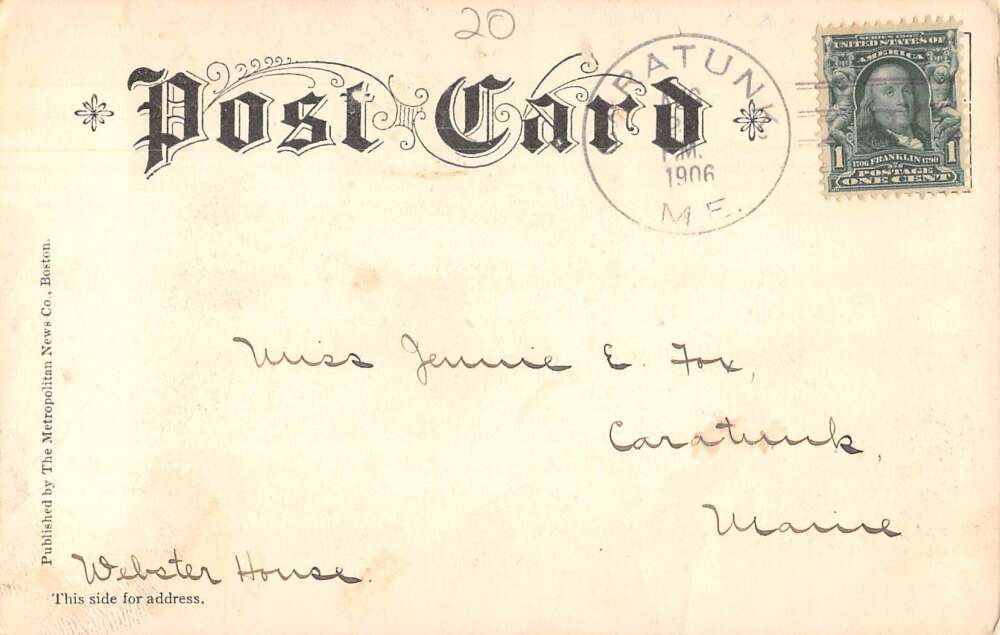 20
Post Card
RATUNK
P.M.
1906
ME.
SERIES 1902
UNITED STATES OF
AMERICA
1 1706 FRANKLIN 1790 1
POSTAGE
ONE CENT
Published by The Metropolitan News Co., Boston.
Miss Jennie E. Fox,
Caratunk,
Maine
Webster House.
This side for address.